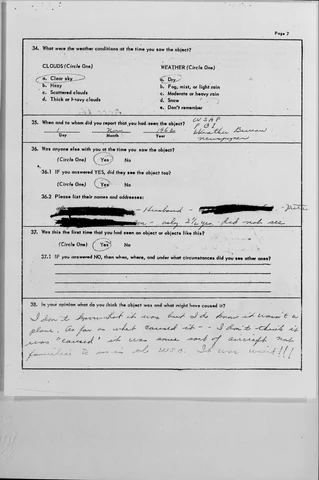 Page 7
34. What were the weather conditions at the time you saw the object?
CLOUDS (Circle One) WEATHER (Circle One)
a. Clear sky a. Dry
b. Hazy b. Fog, mist, or light rain
c. Scattered clouds c. Moderate or heavy rain
d. Thick or heavy clouds d. Snow
e. Don't remember
35. When and to whom did you report that you had seen the object?
1 Nov 196
Day Month Year
USAF
FBI
Weather Bureau
newspaper
36. Was anyone else with you at the time you saw the object?
(Circle One) Yes No
36.1 IF you answered YES, did they see the object too?
(Circle One) Yes No
36.2 Please list their names and addresses:
- Husband -
- only 2½ yrs. did not see
37. Was this the first time that you had seen an object or objects like this?
(Circle One) Yes No
37.1 IF you answered NO, then when, where, and under what circumstances did you see other ones?
38. In your opinion what do you think the object was and what might have caused it?
I don't know what it was but I do know it wasn't a
plane. As far as what caused it - - I don't think it
was "caused" it was some sort of aircraft not
familiar to us in the USA. It was weird!!!